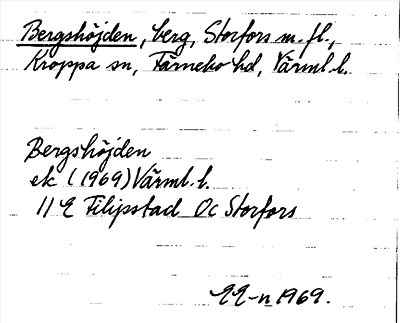 Bergshöjden, berg, Storfors m. fl.,
Kroppa sn, Färnebo hd, Värml. l.
Bergshöjden
ek (1969) Värml. l.
11 E Filipstad 0c Storfors
EE-n 1969.